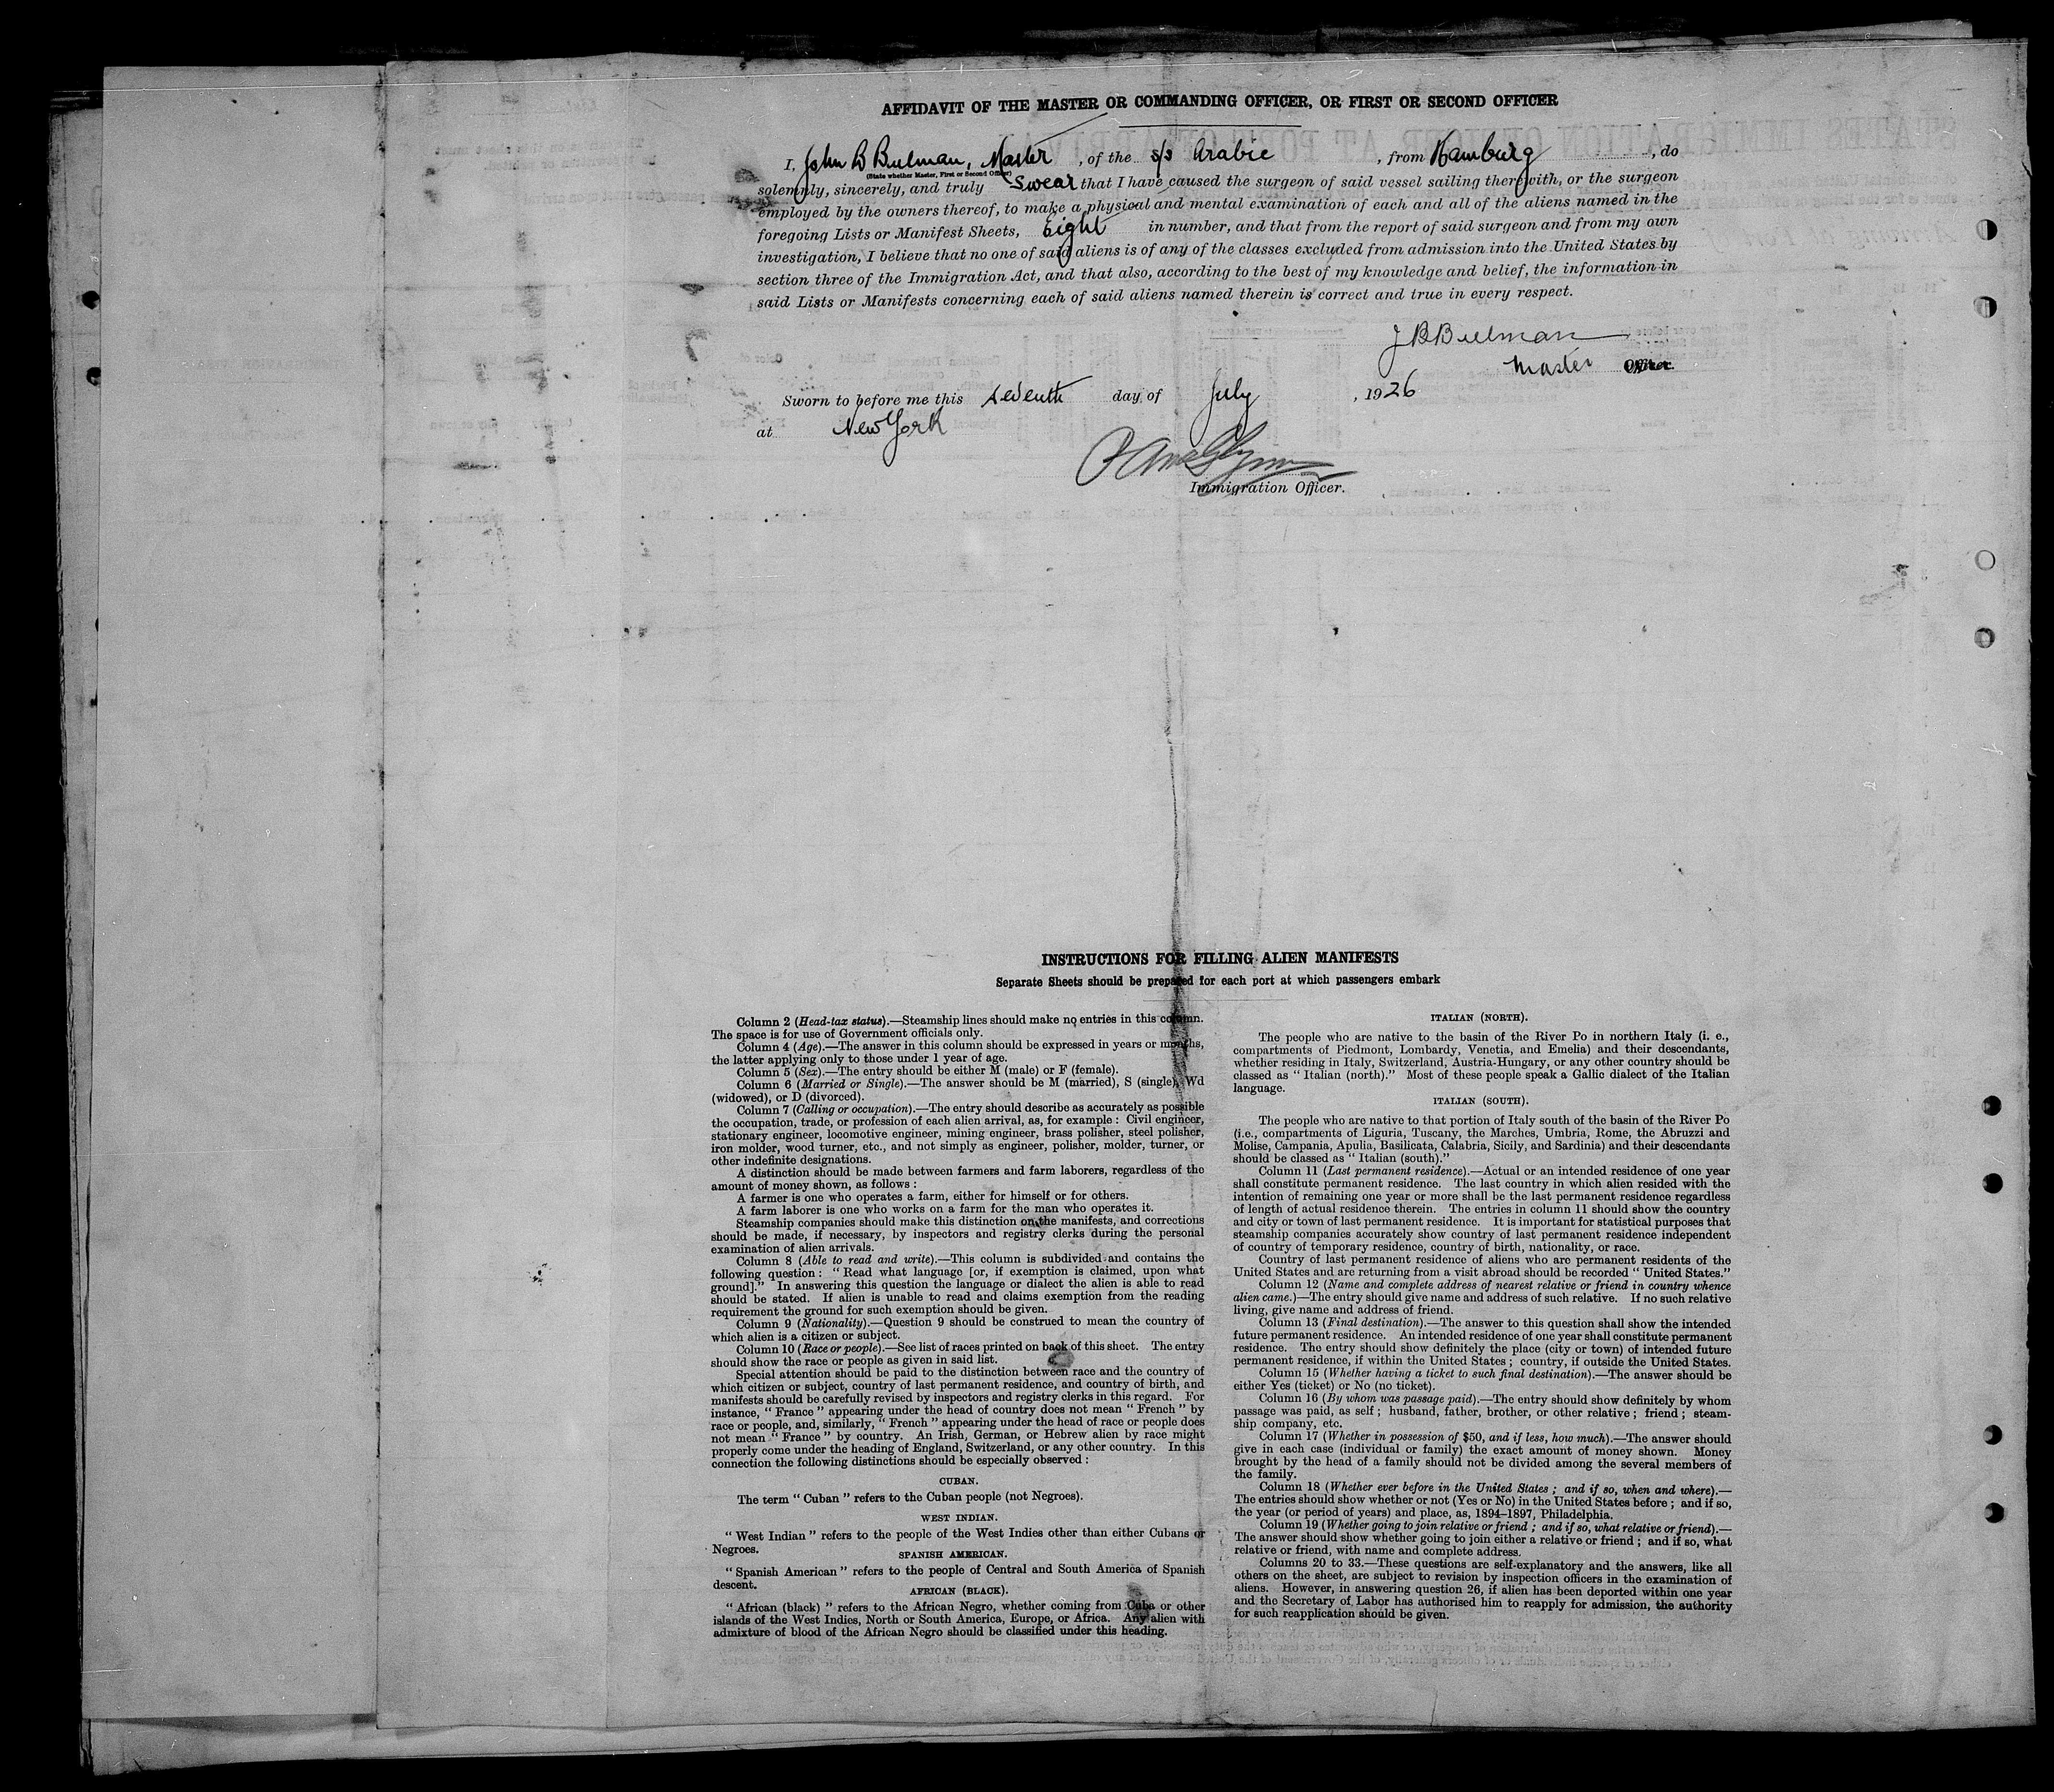 AFFIDAVIT OF THE MASTER OR COMMANDING OFFICER, OR FIRST OR SECOND OFFICER
I, John B Bulman, Master, of the s/s Arabic, from Hamburg, do
(State whether Master, First or Second Officer)
solemnly, sincerely, and truly swear that I have caused the surgeon of said vessel sailing therewith, or the surgeon
employed by the owners thereof, to make a physical and mental examination of each and all of the aliens named in the
foregoing Lists or Manifest Sheets, Eight in number, and that from the report of said surgeon and from my own
investigation, I believe that no one of said aliens is of any of the classes excluded from admission into the United States by
section three of the Immigration Act, and that also, according to the best of my knowledge and belief, the information in
said Lists or Manifests concerning each of said aliens named therein is correct and true in every respect.
J B Bulman
Master Officer.
Sworn to before me this seventh day of July, 1926
at New York
Immigration Officer.
INSTRUCTIONS FOR FILLING ALIEN MANIFESTS
Separate Sheets should be prepared for each port at which passengers embark
Column 2 (Head-tax status).—Steamship lines should make no entries in this column.
The space is for use of Government officials only.
Column 4 (Age).—The answer in this column should be expressed in years or months,
the latter applying only to those under 1 year of age.
Column 5 (Sex).—The entry should be either M (male) or F (female).
Column 6 (Married or Single).—The answer should be M (married), S (single), Wd
(widowed), or D (divorced).
Column 7 (Calling or occupation).—The entry should describe as accurately as possible
the occupation, trade, or profession of each alien arrival, as, for example : Civil engineer,
stationary engineer, locomotive engineer, mining engineer, brass polisher, steel polisher,
iron molder, wood turner, etc., and not simply as engineer, polisher, molder, turner, or
other indefinite designations.
A distinction should be made between farmers and farm laborers, regardless of the
amount of money shown, as follows :
A farmer is one who operates a farm, either for himself or for others.
A farm laborer is one who works on a farm for the man who operates it.
Steamship companies should make this distinction on the manifests, and corrections
should be made, if necessary, by inspectors and registry clerks during the personal
examination of alien arrivals.
Column 8 (Able to read and write).—This column is subdivided and contains the
following question : “ Read what language [or, if exemption is claimed, upon what
ground].” In answering this question the language or dialect the alien is able to read
should be stated. If alien is unable to read and claims exemption from the reading
requirement the ground for such exemption should be given.
Column 9 (Nationality).—Question 9 should be construed to mean the country of
which alien is a citizen or subject.
Column 10 (Race or people).—See list of races printed on back of this sheet. The entry
should show the race or people as given in said list.
Special attention should be paid to the distinction between race and the country of
which citizen or subject, country of last permanent residence, and country of birth, and
manifests should be carefully revised by inspectors and registry clerks in this regard. For
instance, “ France ” appearing under the head of country does not mean “ French ” by
race or people, and, similarly, “ French ” appearing under the head of race or people does
not mean “ France ” by country. An Irish, German, or Hebrew alien by race might
properly come under the heading of England, Switzerland, or any other country. In this
connection the following distinctions should be especially observed :
CUBAN.
The term “ Cuban ” refers to the Cuban people (not Negroes).
WEST INDIAN.
“ West Indian ” refers to the people of the West Indies other than either Cubans or
Negroes.
SPANISH AMERICAN.
“ Spanish American ” refers to the people of Central and South America of Spanish
descent.
AFRICAN (BLACK).
“ African (black) ” refers to the African Negro, whether coming from Cuba or other
islands of the West Indies, North or South America, Europe, or Africa. Any alien with
admixture of blood of the African Negro should be classified under this heading.
ITALIAN (NORTH).
The people who are native to the basin of the River Po in northern Italy (i. e.,
compartments of Piedmont, Lombardy, Venetia, and Emelia) and their descendants,
whether residing in Italy, Switzerland, Austria-Hungary, or any other country should be
classed as “ Italian (north).” Most of these people speak a Gallic dialect of the Italian
language.
ITALIAN (SOUTH).
The people who are native to that portion of Italy south of the basin of the River Po
(i.e., compartments of Liguria, Tuscany, the Marches, Umbria, Rome, the Abruzzi and
Molise, Campania, Apulia, Basilicata, Calabria, Sicily, and Sardinia) and their descendants
should be classed as “ Italian (south).”
Column 11 (Last permanent residence).—Actual or an intended residence of one year
shall constitute permanent residence. The last country in which alien resided with the
intention of remaining one year or more shall be the last permanent residence regardless
of length of actual residence therein. The entries in column 11 should show the country
and city or town of last permanent residence. It is important for statistical purposes that
steamship companies accurately show country of last permanent residence independent
of country of temporary residence, country of birth, nationality, or race.
Country of last permanent residence of aliens who are permanent residents of the
United States and are returning from a visit abroad should be recorded “ United States.”
Column 12 (Name and complete address of nearest relative or friend in country whence
alien came.)—The entry should give name and address of such relative. If no such relative
living, give name and address of friend.
Column 13 (Final destination).—The answer to this question shall show the intended
future permanent residence. An intended residence of one year shall constitute permanent
residence. The entry should show definitely the place (city or town) of intended future
permanent residence, if within the United States ; country, if outside the United States.
Column 15 (Whether having a ticket to such final destination).—The answer should be
either Yes (ticket) or No (no ticket).
Column 16 (By whom was passage paid).—The entry should show definitely by whom
passage was paid, as self ; husband, father, brother, or other relative ; friend ; steam-
ship company, etc.
Column 17 (Whether in possession of $50, and if less, how much).—The answer should
give in each case (individual or family) the exact amount of money shown. Money
brought by the head of a family should not be divided among the several members of
the family.
Column 18 (Whether ever before in the United States ; and if so, when and where).—
The entries should show whether or not (Yes or No) in the United States before ; and if so,
the year (or period of years) and place, as, 1894–1897, Philadelphia.
Column 19 (Whether going to join relative or friend ; and if so, what relative or friend).—
The answer should show whether going to join either a relative or friend ; and if so, what
relative or friend, with name and complete address.
Columns 20 to 33.—These questions are self-explanatory and the answers, like all
others on the sheet, are subject to revision by inspection officers in the examination of
aliens. However, in answering question 26, if alien has been deported within one year
and the Secretary of Labor has authorised him to reapply for admission, the authority
for such reapplication should be given.